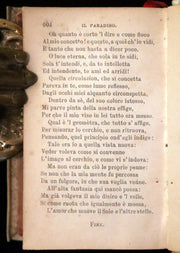 604 IL PARADISO.
Oh quanto è corto 'l dire e come fioco
Al mio concetto! e questo, a quel ch'io vidi,
È tanto che non basta a dicer poco.
O luce eterna, che sola in te sidi,
Sola t'intendi, e, da te intelletta
Ed intendente, te ami ed arridi!
Quella circulazion, che sì concetta
Pareva in te, come lume reflesso,
Dagli occhi miei alquanto circonspetta,
Dentro da sè, del suo colore istesso,
Mi parve pinta della nostra effige,
Per che il mio viso in lei tutto era messo.
Qual è 'l geomètra, che tutto s'affige,
Per misurar lo cerchio, e non ritruova,
Pensando, quel principio ond'egli indige;
Tale era io a quella vista nuova:
Veder voleva come si convenne
L'imago al cerchio, e come vi s'indova;
Ma non eran da ciò le proprie penne:
Se non che la mia mente fu percossa
Da un fulgore, in che sua voglia venne.
All'alta fantasia quì mancò possa:
Ma già volgeva il mio disiro e 'l velle,
Sì come ruota che igualmente è mossa,
L'amor che muove il Sole e l'altre stelle.
FINE.